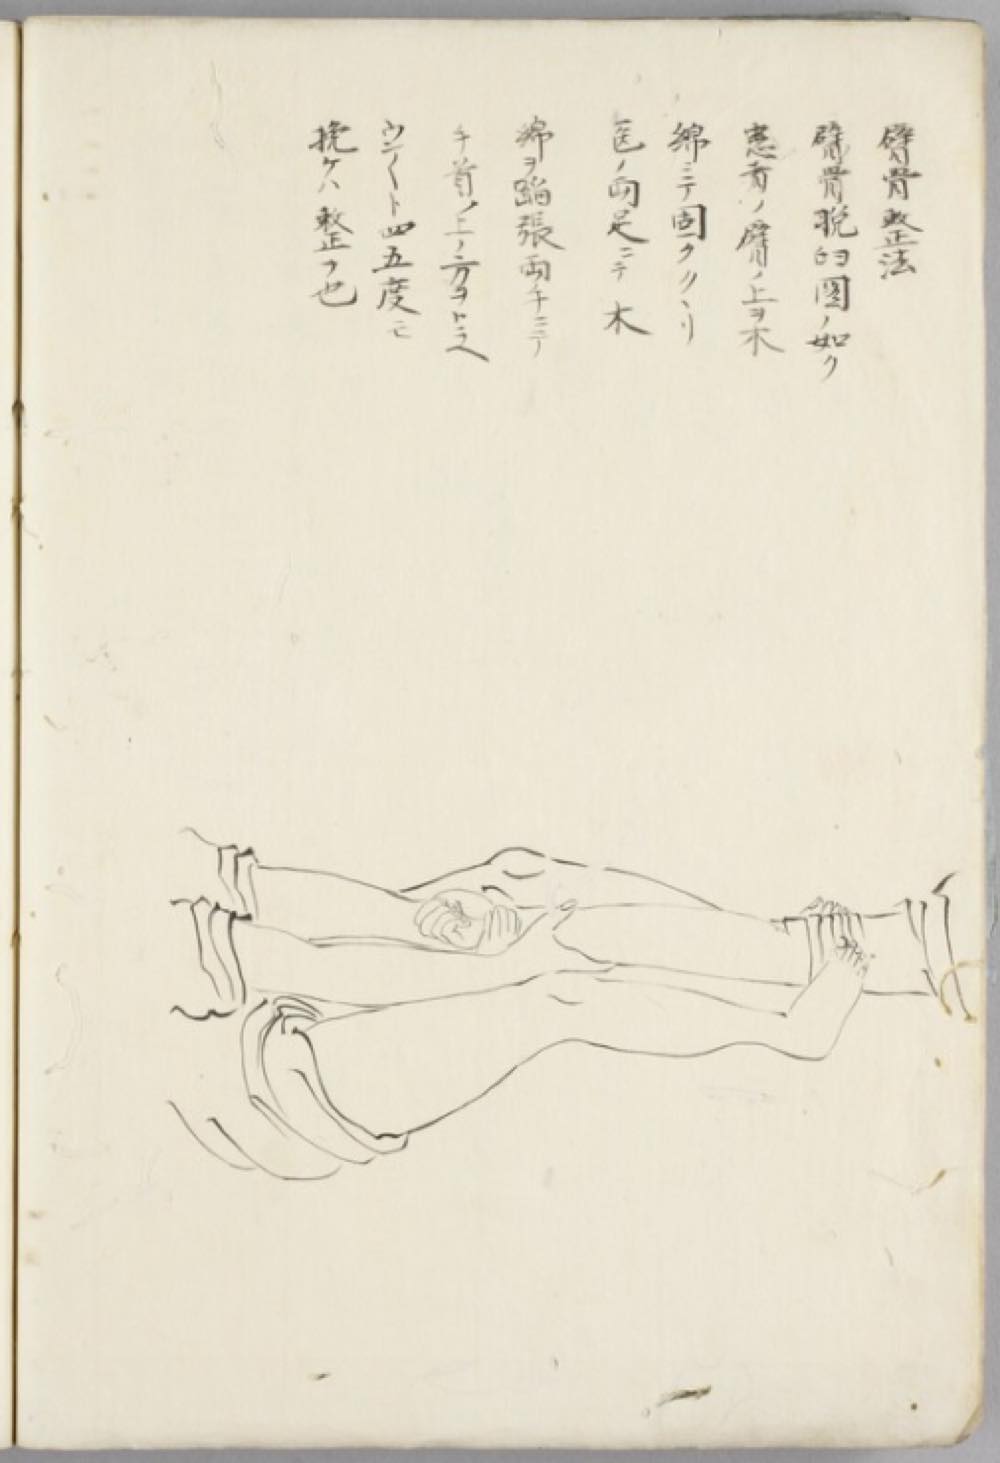 臂骨整法
臂骨脱臼圖ノ如ク
患者ノ臂ノ上ヲ木
綿ニテ固クク丶リ
医ノ両足ニテ木
綿ヲ蹈張両手ニテ
手首ノ上ノ方ヲトラヘ
ウン〱ト四五度モ
挽ケハ整フ也